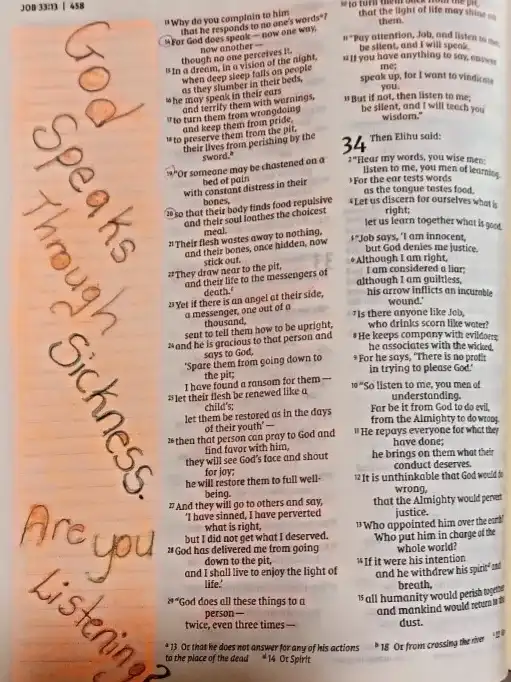 JOB 33:13 | 458
God
Speaks
Through
Sickness.
Are you
Listening?
13 Why do you complain to him
that he responds to no one's words?
14 For God does speak—now one way,
now another—
though no one perceives it.
15 In a dream, in a vision of the night,
when deep sleep falls on people
as they slumber in their beds,
16 he may speak in their ears
and terrify them with warnings,
17 to turn them from wrongdoing
and keep them from pride,
18 to preserve them from the pit,
their lives from perishing by the
sword.b
19 "Or someone may be chastened on a
bed of pain
with constant distress in their
bones,
20 so that their body finds food repulsive
and their soul loathes the choicest
meal.
21 Their flesh wastes away to nothing,
and their bones, once hidden, now
stick out.
22 They draw near to the pit,
and their life to the messengers of
death.c
23 Yet if there is an angel at their side,
a messenger, one out of a
thousand,
sent to tell them how to be upright,
24 and he is gracious to that person and
says to God,
'Spare them from going down to
the pit;
I have found a ransom for them—
25 let their flesh be renewed like a
child's;
let them be restored as in the days
of their youth'—
26 then that person can pray to God and
find favor with him,
they will see God's face and shout
for joy;
he will restore them to full well-
being.
27 And they will go to others and say,
'I have sinned, I have perverted
what is right,
but I did not get what I deserved.
28 God has delivered me from going
down to the pit,
and I shall live to enjoy the light of
life.'
29 "God does all these things to a
person—
twice, even three times—
30 to turn them back from the pit,
that the light of life may shine on
them.
31 "Pay attention, Job, and listen to me;
be silent, and I will speak.
32 If you have anything to say, answer
me;
speak up, for I want to vindicate
you.
33 But if not, then listen to me;
be silent, and I will teach you
wisdom."
34 Then Elihu said:
2 "Hear my words, you wise men;
listen to me, you men of learning.
3 For the ear tests words
as the tongue tastes food.
4 Let us discern for ourselves what is
right;
let us learn together what is good.
5 "Job says, 'I am innocent,
but God denies me justice.
6 Although I am right,
I am considered a liar;
although I am guiltless,
his arrow inflicts an incurable
wound.'
7 Is there anyone like Job,
who drinks scorn like water?
8 He keeps company with evildoers;
he associates with the wicked.
9 For he says, 'There is no profit
in trying to please God.'
10 "So listen to me, you men of
understanding.
Far be it from God to do evil,
from the Almighty to do wrong.
11 He repays everyone for what they
have done;
he brings on them what their
conduct deserves.
12 It is unthinkable that God would do
wrong,
that the Almighty would pervert
justice.
13 Who appointed him over the earth?
Who put him in charge of the
whole world?
14 If it were his intention
and he withdrew his spirit d and
breath,
15 all humanity would perish together
and mankind would return to the
dust.
a 13 Or that he does not answer for any of his actions b 18 Or from crossing the river c 22
to the place of the dead d 14 Or Spirit